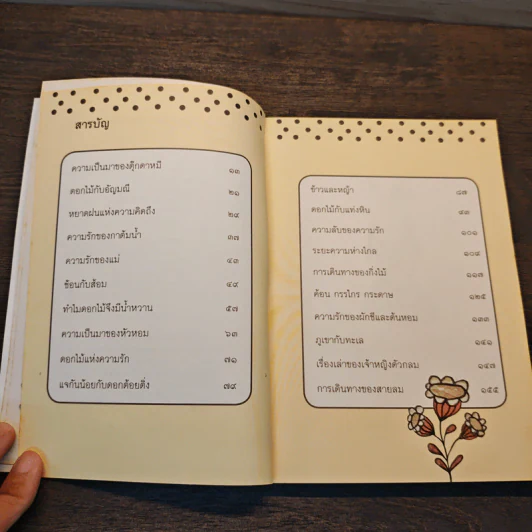 สารบัญ
ความเป็นมาของตุ๊กตาหมี ๑๓
ดอกไม้กับอัญมณี ๒๑
หยาดฝนแห่งความคิดถึง ๒๙
ความรักของกาต้มน้ำ ๓๗
ความรักของแม่ ๔๓
ช้อนกับส้อม ๔๙
ทำไมดอกไม้จึงมีน้ำหวาน ๕๗
ความเป็นมาของหัวหอม ๖๓
ดอกไม้แห่งความรัก ๗๑
แจกันน้อยกับดอกต้อยติ่ง ๗๙
ข้าวและหญ้า ๘๗
ดอกไม้กับแท่งหิน
ความลับของความรัก ๑๐๑
ระยะความห่างไกล ๑๐๙
การเดินทางของกิ่งไม้ ๑๑๗
ค้อน กรรไกร กระดาษ ๑๒๕
ความรักของผักชีและต้นหอม ๑๓๓
ภูเขากับทะเล ๑๔๑
เรื่องเล่าของเจ้าหญิงตัวกลม ๑๔๗
การเดินทางของสายลม ๑๕๕